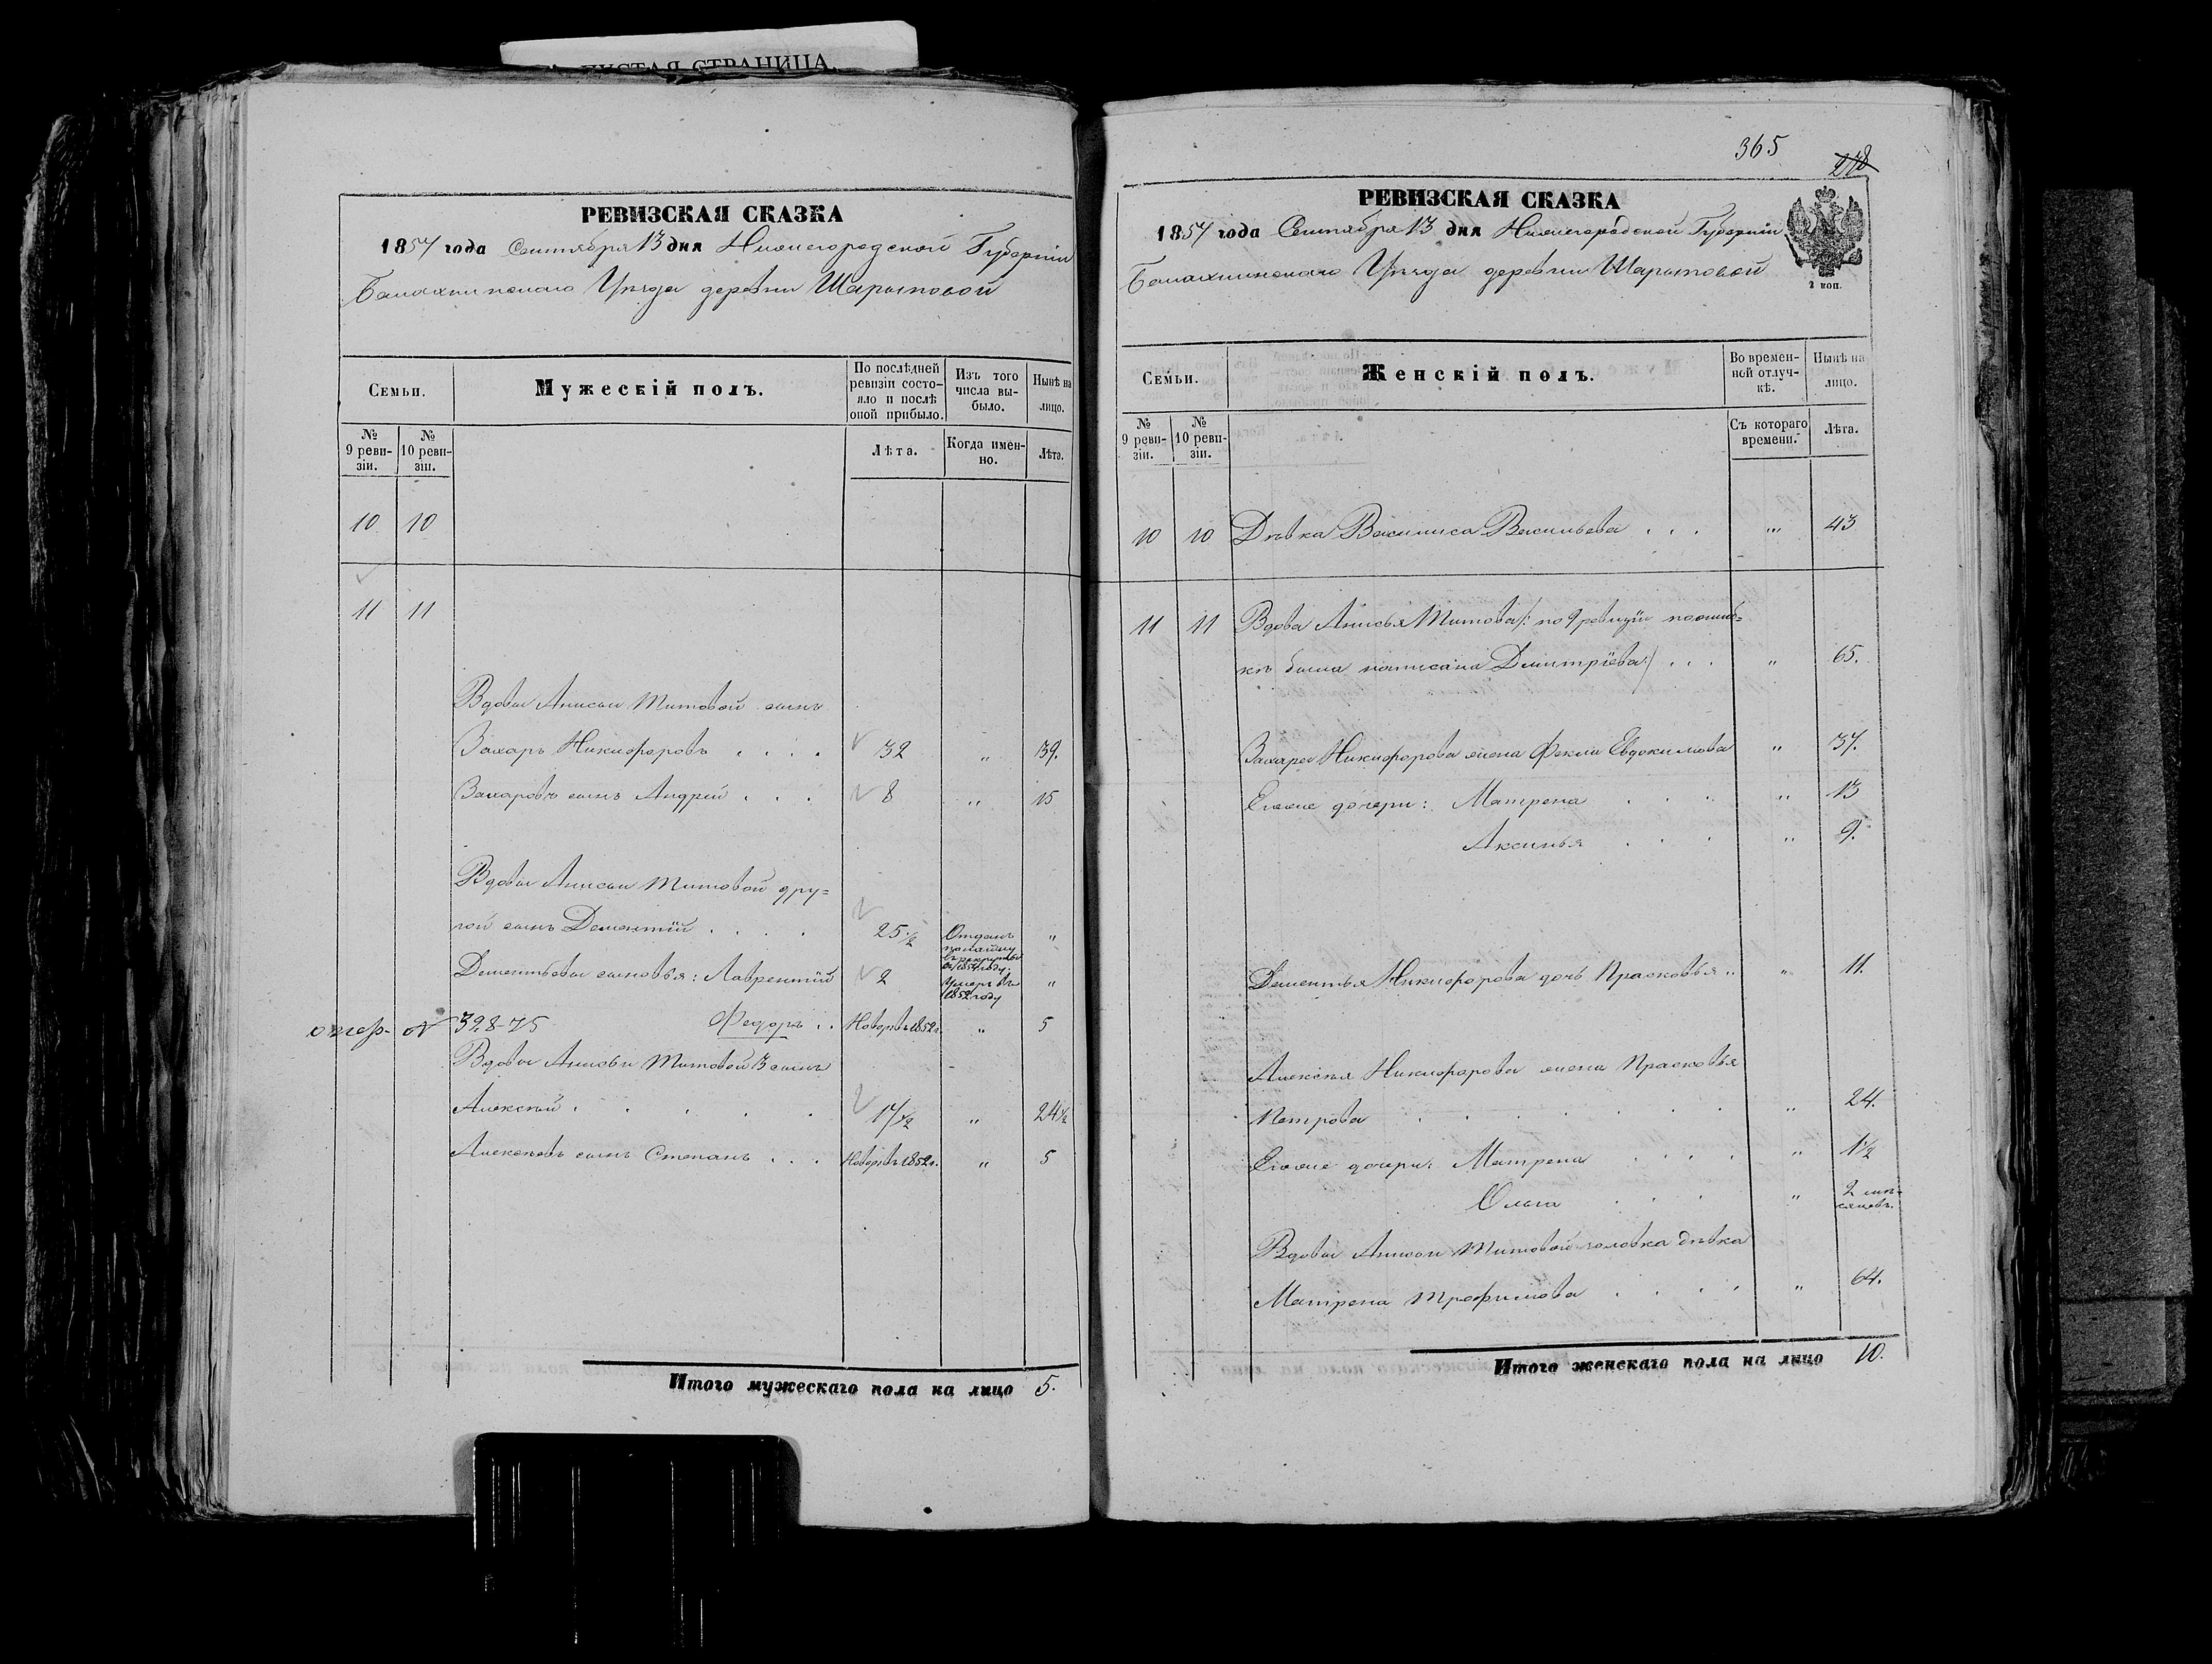 ПУСТАЯ СТРАНИЦА.
РЕВИЗСКАЯ СКАЗКА
1857 года Сентября 13 дня Нижегородской Губерніи
Балахнинскаго Уѣзда деревни Шарыповой
Семьи.
Мужескій полъ.
По послѣдней ревизіи состояло и послѣ оной прибыло.
Изъ того числа выбыло.
Нынѣ на лицо.
№ 9 ревизіи.
№ 10 ревизіи.
Лѣта.
Когда именно.
Лѣта.
10 10
11 11
Вдовы Анисьи Титовой сынъ
Захаръ Никифоровъ . . . . 32 „ 39.
Захаровъ сынъ Андрей . . . 8 „ 15
Вдовы Анисьи Титовой дру=
гой сынъ Дементій . . . . 25 1/2 Отданъ
въ рекруты
въ 1854 году. „
Дементьевы сыновья: Лаврентій 2 Умеръ въ
1852 году „
39, 8-75 Федоръ . . Новорж. 1852 г. „ 5
Вдовы Анисьи Титовой 3 сынъ
Алексѣй . . . . . 17 1/2 „ 24 1/2
Алексѣевъ сынъ Степанъ . . . Новорж. 1852 г. „ 5
Итого мужескаго пола на лицо 5.
365
РЕВИЗСКАЯ СКАЗКА
1857 года Сентября 13 дня Нижегородской Губерніи
Балахнинскаго Уѣзда деревни Шарыповой
2 коп.
Семьи.
Женскій полъ.
Во временной отлучкѣ.
Нынѣ на лицо.
№ 9 ревизіи.
№ 10 ревизіи.
Съ котораго времени.
Лѣта.
10 10 Дѣвка Василиса Васильева . . . „ 43
11 11 Вдова Анисья Титова /: по 9 ревизіи по ошиб=
кѣ была написана Дмитріева :/ . . . „ 65.
Захара Никифорова жена Фекла Евдокимова „ 37.
Егоже дочери: Матрена . . . „ 13
Аксинья . . . „ 9.
Дементья Никифорова дочь Прасковья „ „ 11.
Алексѣя Никифорова жена Прасковья
Петрова . . . . . . . „ 24.
Егоже дочери: Матрена . . . . „ 1 1/2
Ольга . . . . „ 2 мѣ-
сяцевъ.
Вдовы Анисьи Титовой золовка дѣвка
Матрена Трофимова . . . . „ 64.
Итого женскаго пола на лицо 10.